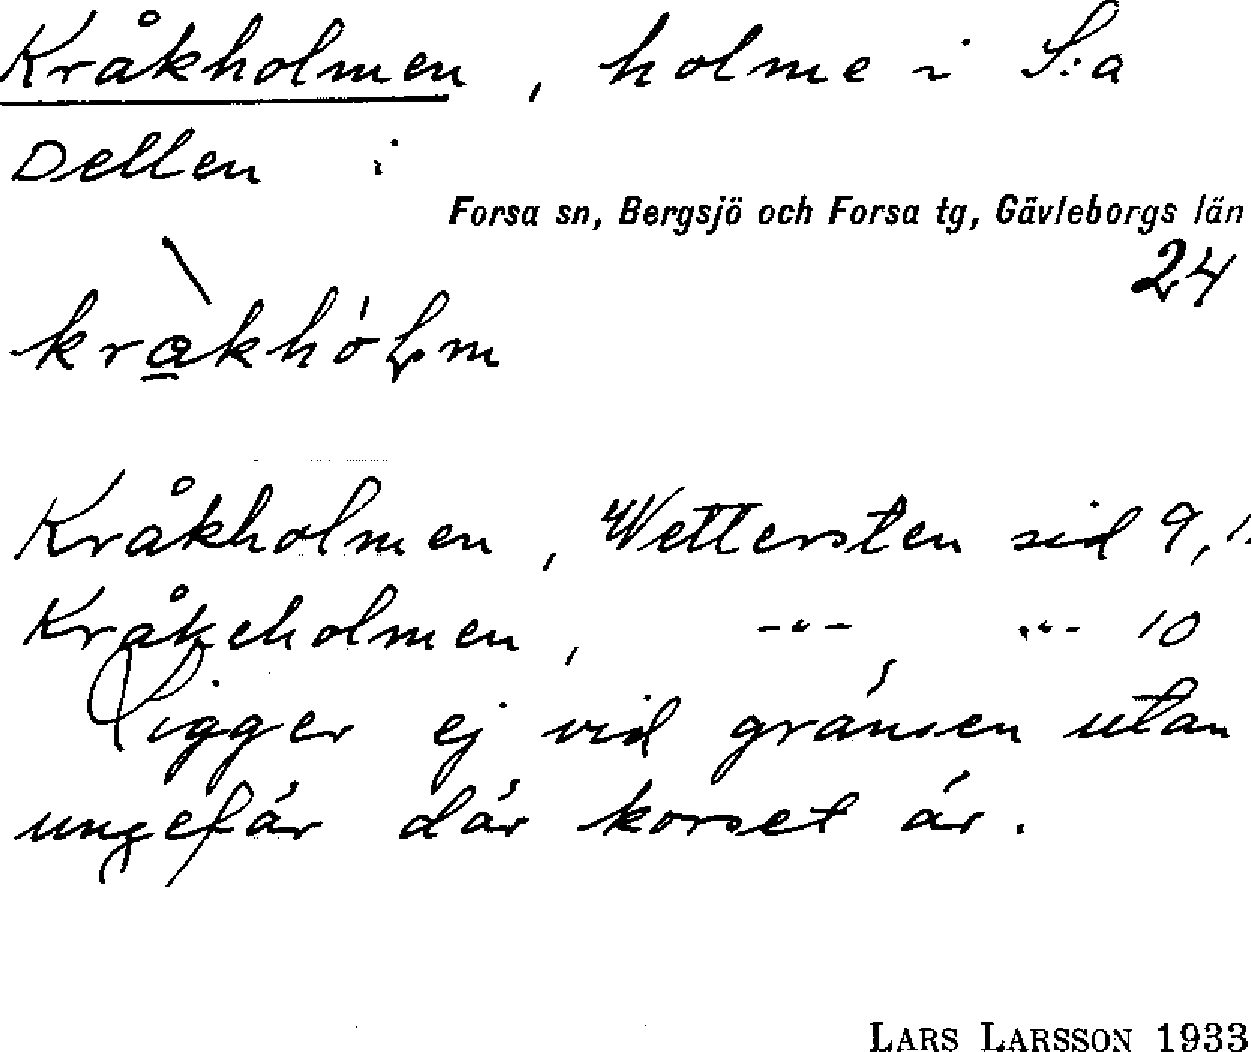 Kråkholmen, holme i S:a
Dellen i
Forsa sn, Bergsjö och Forsa tg, Gävleborgs län
24
Kråkholmen, Wettersten sid 9,
Kråkeholmen, -"- -"- 10
Ligger ej vid gränsen utan
ungefär där korset är.
LARS LARSSON 1933